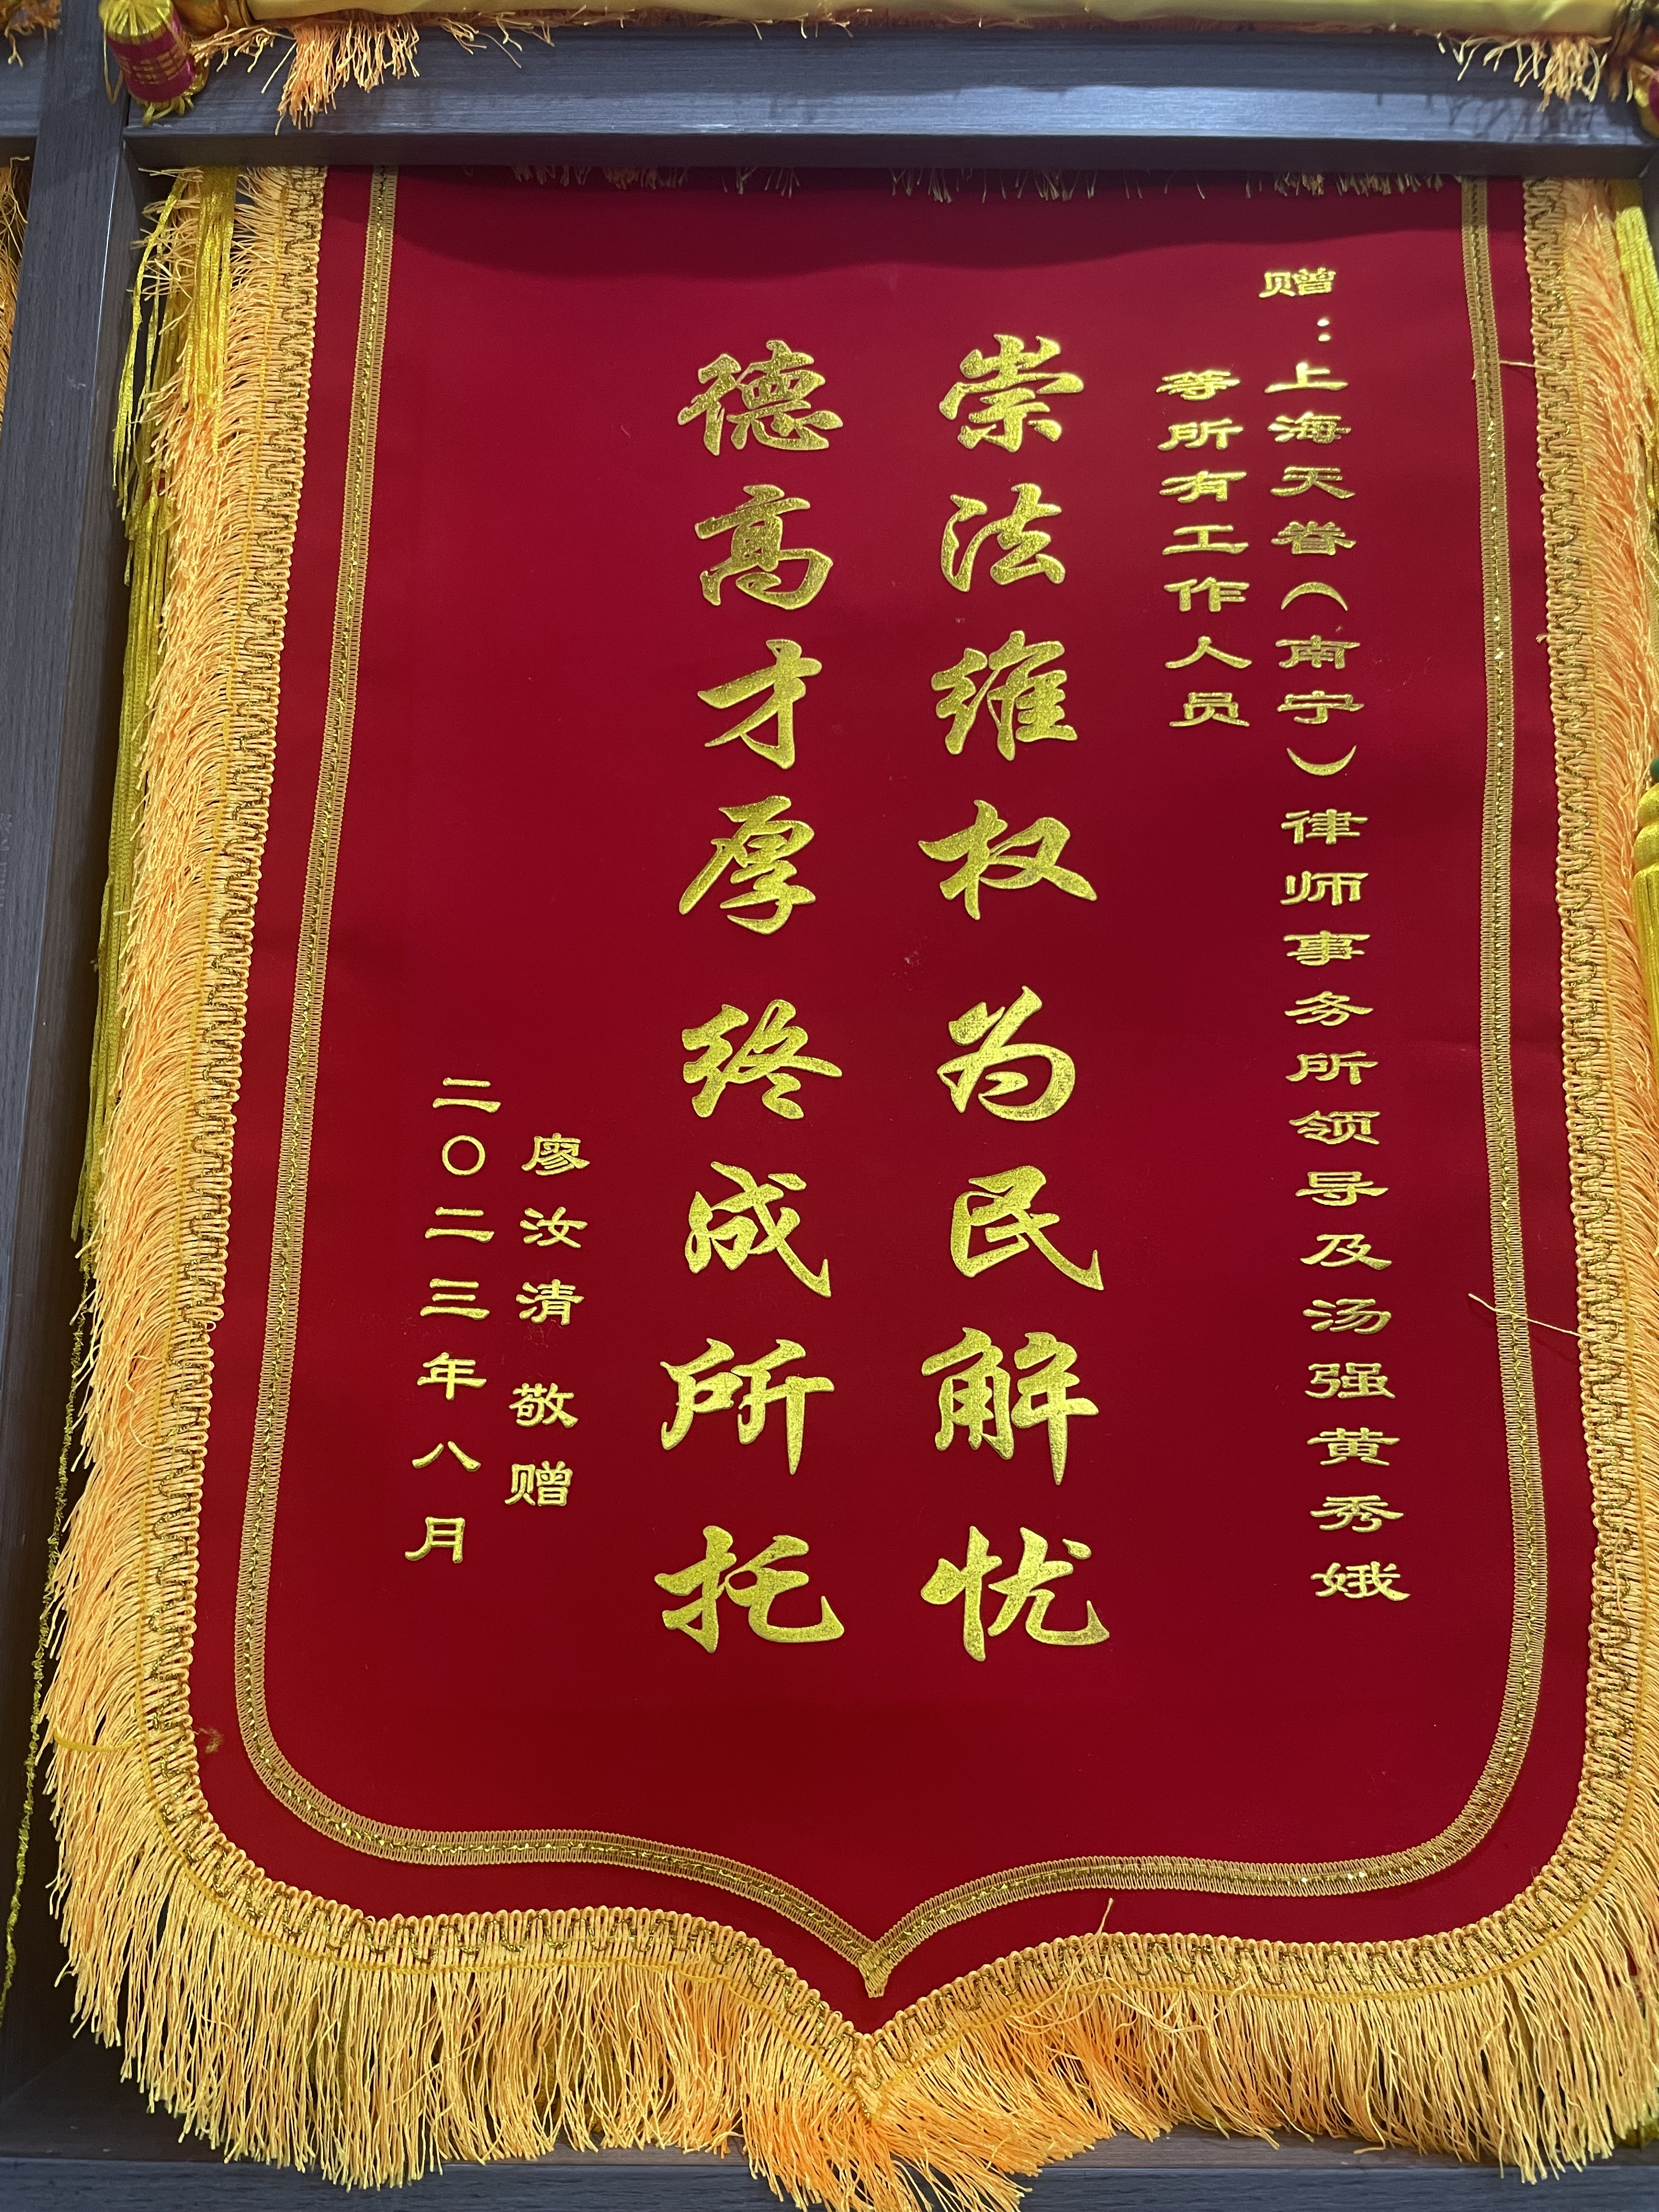 赠：上海天眷（南宁）律师事务所领导及汤强黄秀娥
等所有工作人员
崇法维权 为民解忧
德高才厚 终成所托
廖汝清 敬赠
二〇二三年八月